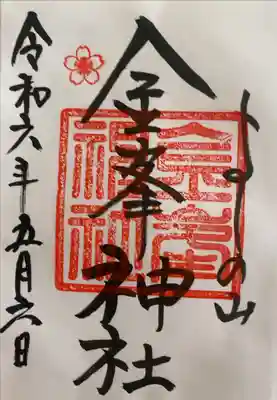 よしの山
金峯神社
令和六年五月六日
金峯
神社